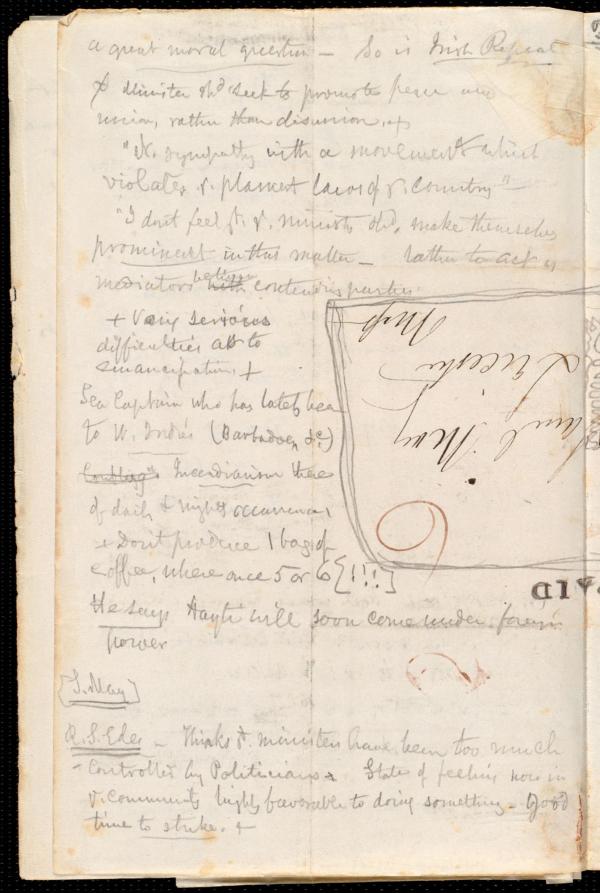 a great moral question — So is Irish Repeal
Minister shd seek to promote peace and
union, rather than disunion, +
"No sympathy with a movement which
violates ye. plainest laws of ye. country" —
"I dont feel yt. ye. ministers shd. make themselves
prominent in this matter — rather to act as
mediators with between contending parties.
+ Very serious
difficulties as to
emancipation, +
Sea Captain who has lately been
to W. Indies (Barbadoes, &c.)
Incendiarism there
of daily & nightly occurrence,
+ Dont produce 1 bag of
coffee, where once 5 or 6 [!!!]
He says Hayti will soon come under foreign
power
[S. May]
R. S. Edes — Thinks ye. ministers have been too much
controlled by Politicians. State of feeling now in
ye. community highly favorable to doing something. Good
time to strike. +
Samuel May
Leicester
Mass
6
PAID